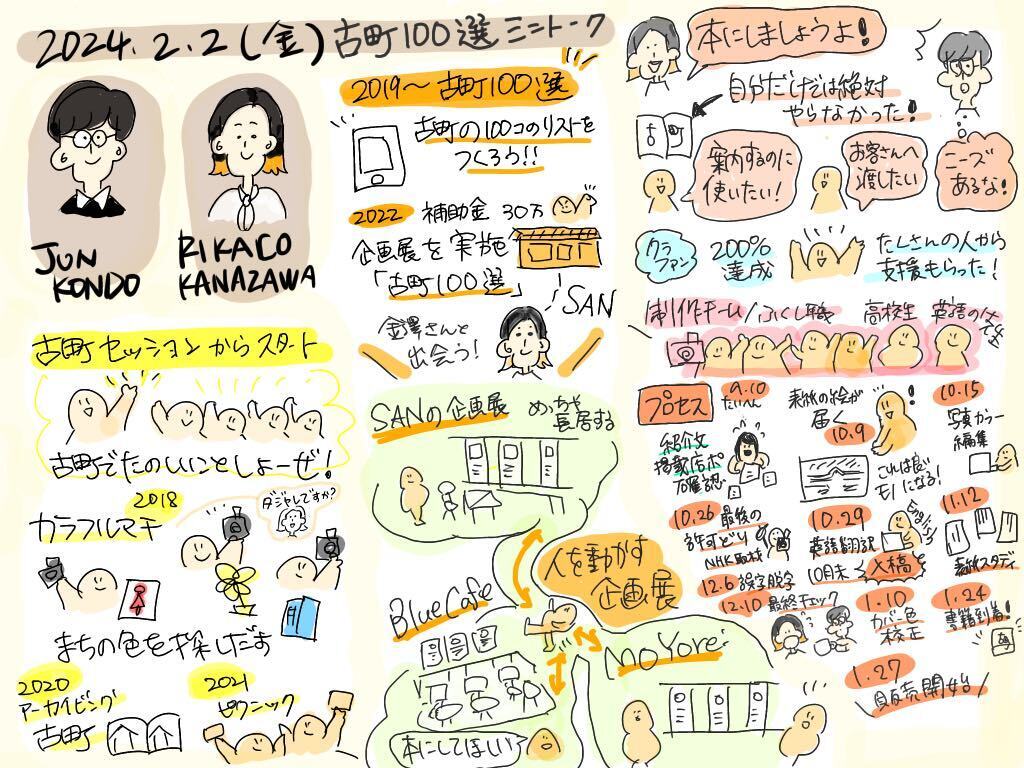 2024.2.2(金)古町100選ミニトーク
JUN
KONDO
RIKACO
KANAZAWA
古町セッションからスタート
古町でたのしいことしよーぜ!
2018
カラフルマチ
ダジャレですか?
まちの色を探しだす
2020
アーカイビング
古町
2021
ピクニック
2019〜古町100選
古町の100コのリストを
つくろう!!
2022 補助金 30万
企画展を実施
「古町100選」
金澤さんと
出会う!
SAN
SANの企画展
めっちゃ
長居する
人を動かす
企画展
Blue Cafe
本にしてほしい
MoYore:
本にしましょうよ!
自分だけでは絶対
やらなかった!
古町
案内するのに
使いたい!
お客さんへ
渡したい
ニーズ
あるな!
クラ
ファン
200%
達成
たくさんの人から
支援もらった!
制作チーム/ふくし職 高校生 英語の先生
プロセス
9.10
たいへん
紹介文
掲載店
確認
表紙の絵が
届く
10.9
これは良い
モノになる!
10.15
写真カラー
編集
10.26 最後の
許すどり
NHK取材
10.29
英語翻訳
English
10月末
入稿
11.12
表紙スタディ
12.6 誤字脱字
12.10 最終チェック
1.10
カバー色
校正
1.24
書籍到着!
1.27
販売開始